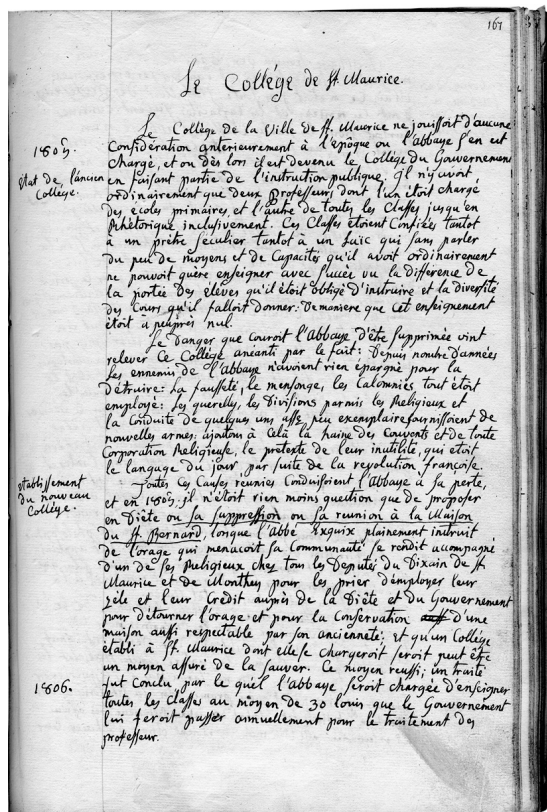 167
Le Collége de St. Maurice.
Le Collège de la Ville de St. Maurice ne jouissoit d'aucune
1805.
Considération antérieurement à l'époque ou l'abbaye s'en est
chargé, et ou dès lors il est devenu le Collège du Gouvernement
état de l'ancien
Collège.
en faisant partie de l'instruction publique. il n'y avoit
ordinairement que deux Professeurs dont l'un étoit chargé
des écoles primaires, et l'autre de toutes les Classes jusqu'en
Rhétorique inclusivement. Ces Classes étoient Confiées tantot
à un prêtre séculier tantot à un Laïc qui sans parler
du peu de moyens et de Capacités qu'il avoit ordinairement
ne pouvoit guère enseigner avec succée vu la différence de
la portée des élèves qu'il étoit obligé d'instruire et la diversité
des Cours qu'il falloit donner: De maniere que Cet enseignement
étoit a peuprès nul.
Le Danger que couroit l'Abbaye d'être supprimée vint
relever Ce Collége aneanti par le fait: Depuis nombre d'années
les ennemis de l'abbaye n'avoient rien épargné pour la
détruire: La fausseté, le mensonge, les Calomnies tout étoit
employé: Les querelles, les Divisions parmis les Religieux et
la Conduite de quelques uns assez peu exemplaire fournissoient de
nouvelles armes: ajoutons à Cèlà la haine des Couvents et de toute
Corporation Religieuse, le prétexte de leur inutilité, qui étoit
le langage du jour, par suite de la revolution françoise.
établissement
du nouveau
Collége.
Toutes Ces Causes reunies Conduisoient l'Abbaye à sa perte,
et en 1805, il n'étoit rien moins question que de proposer
en Diête ou sa suppression ou sa reunion à la Maison
du St. Bernard, lorsque l'abbé Exquix plainement instruit
de l'orage qui menacoit sa Communauté se rendit accompagné
d'un de ses Religieux chez tous les Deputés du Dixain de St
Maurice et de Monthey pour les prier d'employer leur
zèle et leur Crédit auprès de la Diête et du Gouvernement
pour détourner l'orage et pour la Conservation d'une
maison aussi respectable par son ancienneté; et qu'un Collége
établi à St. Maurice dont elle se chargeroit seroit peut être
un moyen assuré de la sauver. Ce moyen reussi; un traité
1806.
fut Conclu par le quel l'abbaye seroit chargée d'enseigner
toutes les Classes au moyen de 30 louis que le Gouvernement
lui feroit passer annuellement pour le traitement des
professeur.